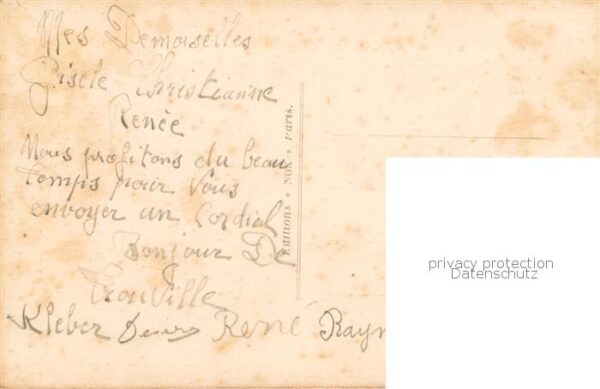 Mes Demoiselles
Gisele Christianne
Renée
Nous profitons du beau
temps pour Vous
envoyer un Cordial
Bonjour De
Trouville
Kleber René Raym
Editions • NOS • Paris.
privacy protection
Datenschutz